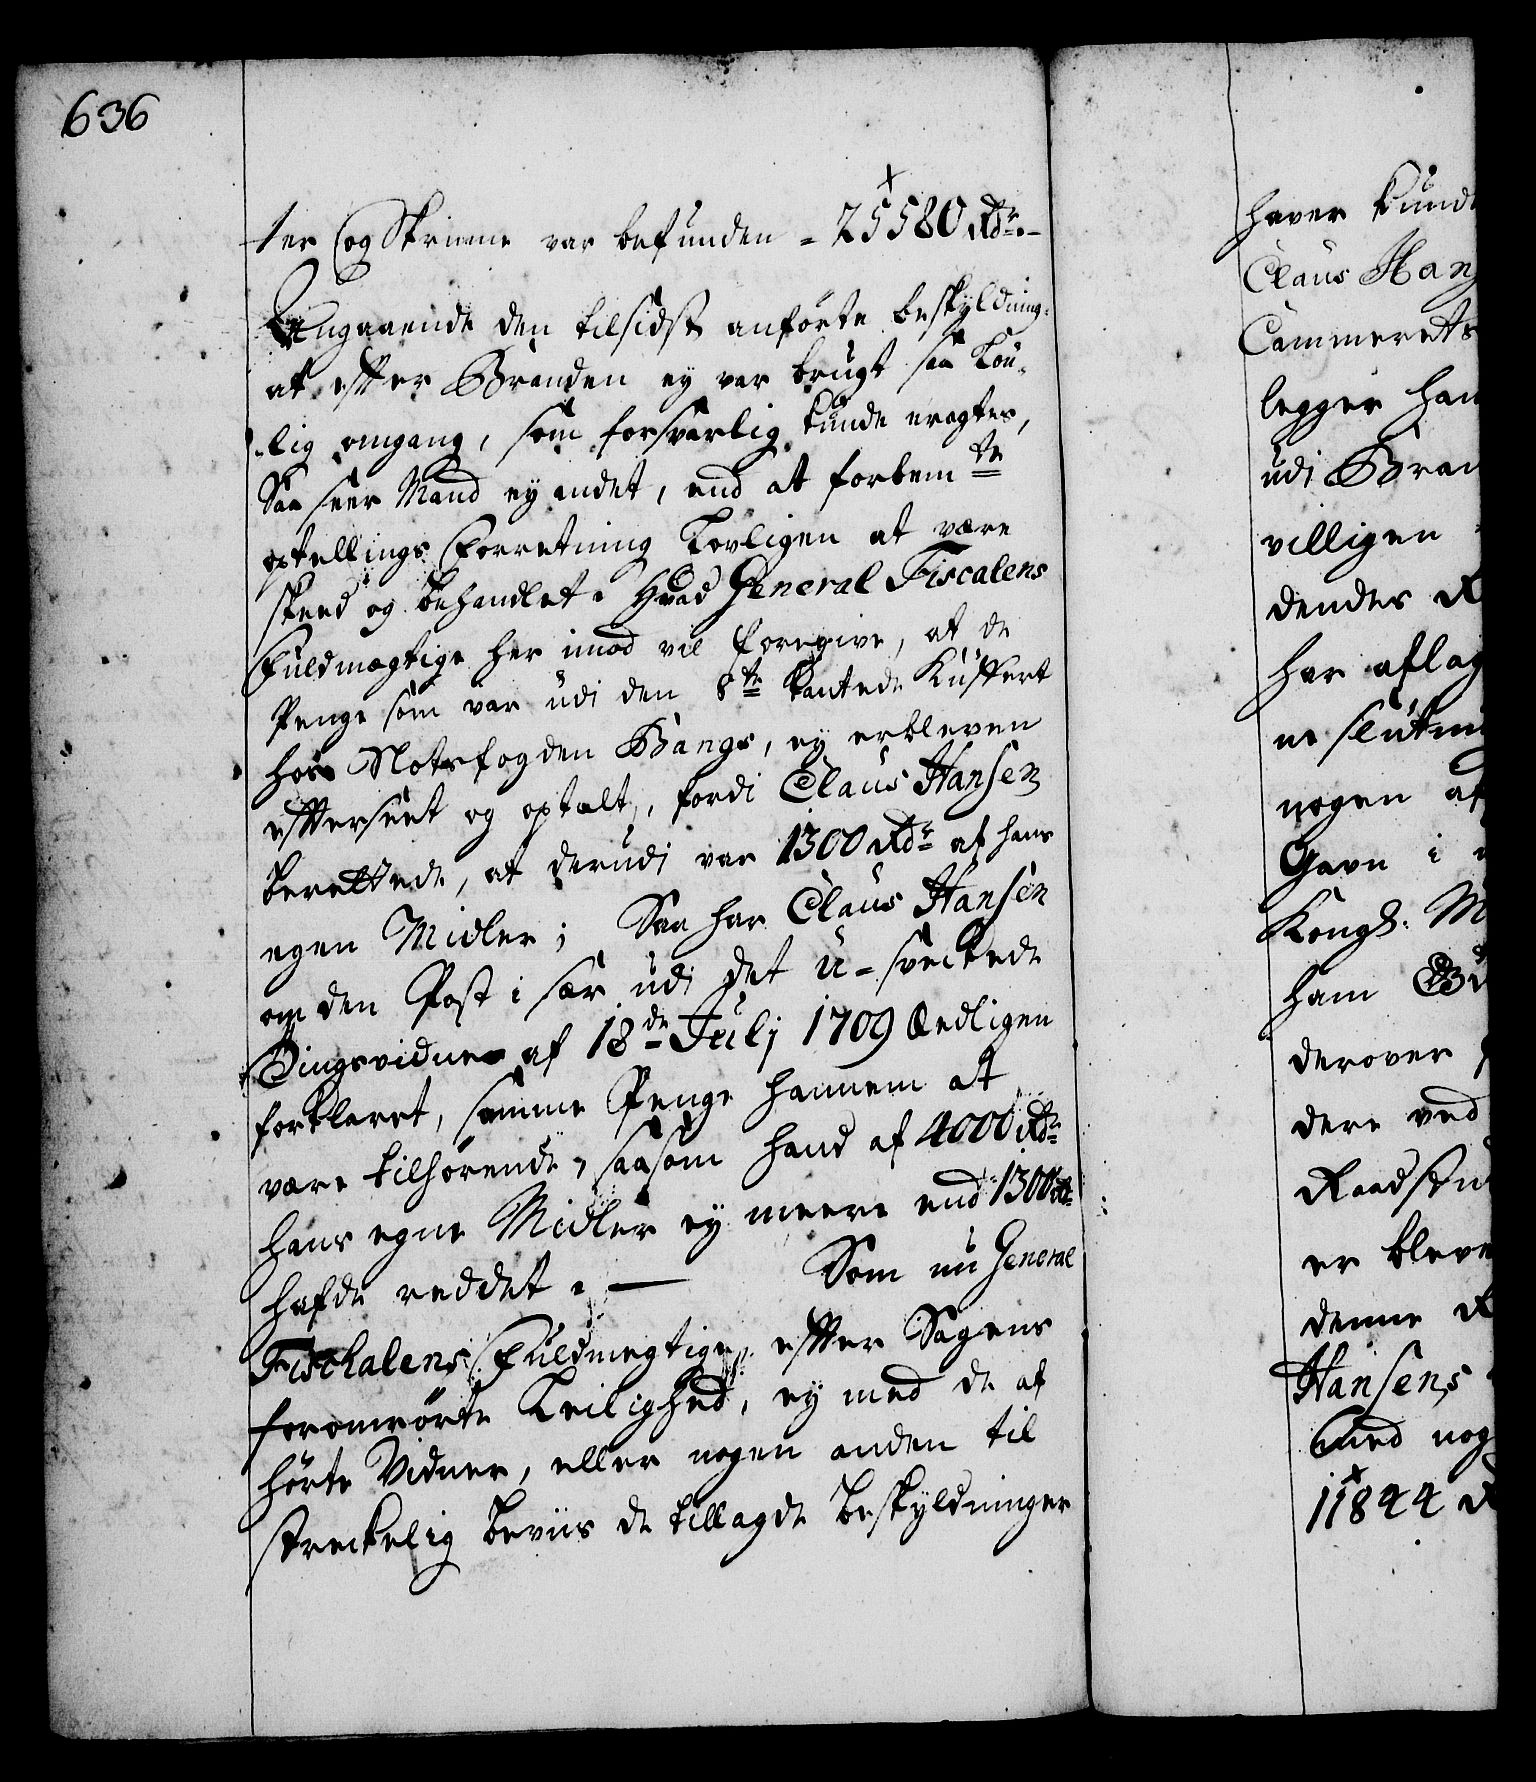 636
ter og Skriene var befunden - 25580 Rdr. -
Angaaende den tilsidst anførte beskyldning,
at efter Branden ey var brugt saa Lou-
lig omgang, som forsvarlig kunde eragtes,
Saa seer Mand ey andet, end at forbemte
optellings Forretning Lovligen at være
skeed og behandlet. Hvad General Fiscalens
Fuldmægtige her imod vil foregive, at de
Penge som var udi den 8te kantede Kuffert
hos Slotsfogden Bangs, ey erbleven
efterseet og optalt, fordi Claus Hansen
berettede, at derudi var 1300 Rdr af hans
egen Midler; Saa har Claus Hansen
om den Post i sær udi det u-sveckede
Tingsvidne af 18de Julj 1709 Eedligen
forklaret, samme Penge hannem at
være tilhørende, saasom hand af 4000 Rdr
hans egne Midler ey meere end 1300 Rdr
hafde reddet. — Som nu General
Fischalens Fuldmegtige efter Sagens
foromrørte Leilighed, ey med de af
hørte Vidner, eller nogen anden til
streckelig beviis de tillagde beskyldninger
haver kund
Claus Han
Cammerets
legger han
udi Bran
villigen
dendes R
har aflag
ne slutni
nogen af
Gavn i
Kongl. M
ham
derover
dere ved
Raadstu
er bleve
denne R
Hansens
med nog
11844 R